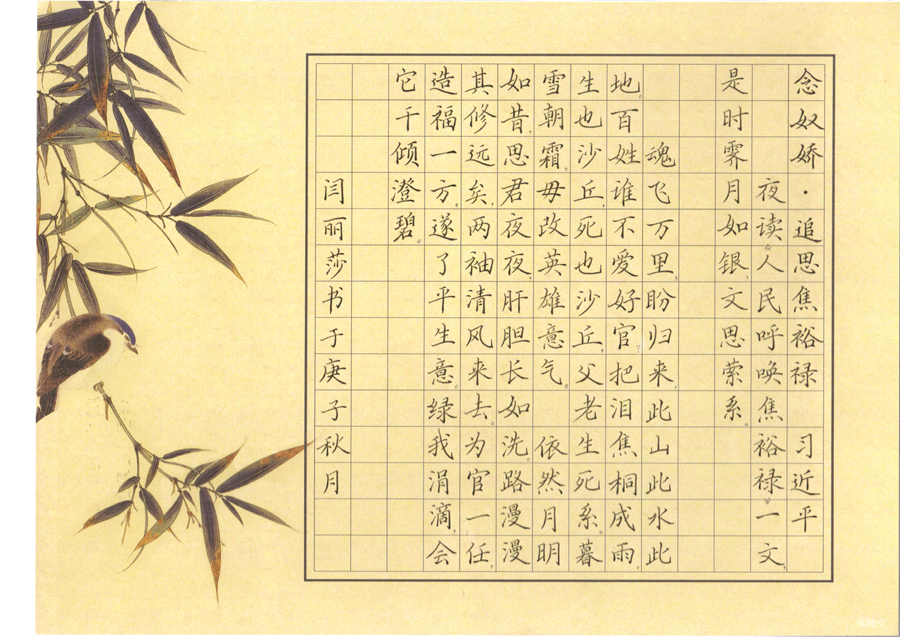 念奴娇·追思焦裕禄 习近平
夜读《人民呼唤焦裕禄》一文，
是时霁月如银，文思萦系。
魂飞万里，盼归来，此山此水此
地。百姓谁不爱好官，把泪焦桐成雨。
生也沙丘，死也沙丘，父老生死系。暮
雪朝霜，毋改英雄意气。 依然月明
如昔，思君夜夜，肝胆长如洗。路漫漫
其修远矣，两袖清风来去。为官一任，
造福一方，遂了平生意。绿我涓滴，会
它千倾澄碧。
闫丽莎书于庚子秋月